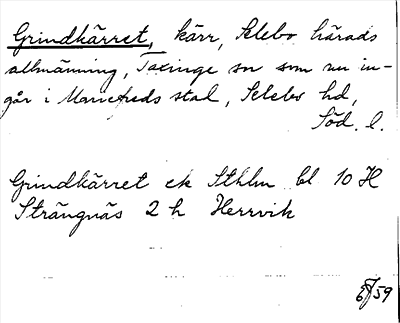 Grindkärret, kärr, Selebo härads
allmänning, Taxinge sn som nu in-
går i Mariefreds stal, Selebo hd,
Söd. l.
Grindkärret ek Sthlm bl 10 H
Strängnäs 2 h Herrvik
59